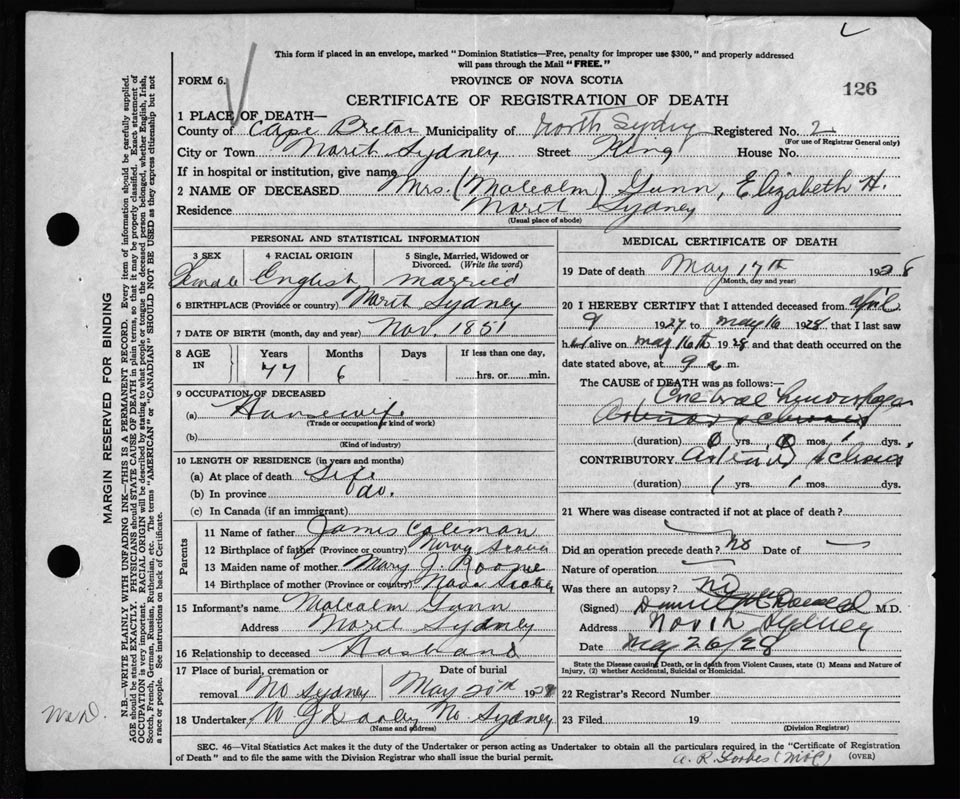 This form if placed in an envelope, marked "Dominion Statistics—Free, penalty for improper use $300," and properly addressed
will pass through the Mail "FREE."
FORM 6.
PROVINCE OF NOVA SCOTIA
126
CERTIFICATE OF REGISTRATION OF DEATH
1 PLACE OF DEATH—
County of Cape Breton Municipality of North Sydney Registered No. 2
(For use of Registrar General only)
City or Town North Sydney Street King House No.
If in hospital or institution, give name
2 NAME OF DECEASED Mrs. (Malcolm) Gunn, Elizabeth H.
Residence North Sydney
(Usual place of abode)
PERSONAL AND STATISTICAL INFORMATION
3 SEX 4 RACIAL ORIGIN 5 Single, Married, Widowed or Divorced. (Write the word)
Female English married
6 BIRTHPLACE (Province or country) North Sydney
7 DATE OF BIRTH (month, day and year) Nov. 1851
8 AGE IN Years Months Days If less than one day,
77 6 hrs. or min.
9 OCCUPATION OF DECEASED
(a) Housewife
(Trade or occupation or kind of work)
(b)
(Kind of industry)
10 LENGTH OF RESIDENCE (in years and months)
(a) At place of death Life
(b) In province do.
(c) In Canada (if an immigrant)
Parents
11 Name of father James Coleman
12 Birthplace of father (Province or country) Nova Scotia
13 Maiden name of mother Mary J. Boone
14 Birthplace of mother (Province or country) Nova Scotia
15 Informant's name Malcolm Gunn
Address North Sydney
16 Relationship to deceased Husband
17 Place of burial, cremation or removal No Sydney Date of burial May 20th 1928
18 Undertaker W J Dooley No Sydney
(Name and address)
MEDICAL CERTIFICATE OF DEATH
19 Date of death May 17th 1928
(Month, day and year)
20 I HEREBY CERTIFY that I attended deceased from April
9 1927 to May 16 1928, that I last saw
her alive on May 16th 1928 and that death occurred on
date stated above, at 9 a m.
The CAUSE OF DEATH was as follows:—
Cerebral hemorrhage
(duration) 0 yrs. 0 mos. 1 dys.
CONTRIBUTORY Arterio sclerosis
(duration) 1 yrs. 1 mos. dys.
21 Where was disease contracted if not at place of death?
Did an operation precede death? No Date of
Nature of operation
Was there an autopsy? No
(Signed) McDonald M.D.
Address North Sydney
Date May 26/28
State the Disease causing Death, or in death from Violent Causes, state (1) Means and Nature of
Injury, (2) whether Accidental, Suicidal or Homicidal.
22 Registrar's Record Number
23 Filed 19
(Division Registrar)
SEC. 46—Vital Statistics Act makes it the duty of the Undertaker or person acting as Undertaker to obtain all the particulars required in the "Certificate of Registration
of Death" and to file the same with the Division Registrar who shall issue the burial permit.
A. R. Forbes (OVER)
MARGIN RESERVED FOR BINDING
N.B.—WRITE PLAINLY WITH UNFADING INK—THIS IS A PERMANENT RECORD. Every item of information should be carefully supplied.
AGE should be stated EXACTLY. PHYSICIANS should STATE CAUSE OF DEATH in plain terms, so that it may be properly classified. Exact statement of
OCCUPATION is very important. RACIAL ORIGIN will be described by stating to what people or tongue the deceased person belonged, whether English, Irish,
Scotch, French, German, Russian, Ruthenian, etc. The terms "AMERICAN" or "CANADIAN" SHOULD NOT BE USED as they express citizenship but not
a race or people. See instructions on back of Certificate.